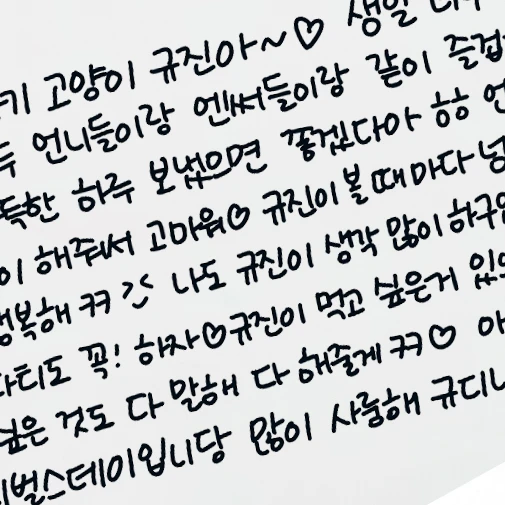 키 고양이 규진아~♡ 생일
언니들이랑 엔써들이랑 같이 즐겁
득한 하루 보냈으면 좋겠다아 흐흐
이 해줘서 고마워♡ 규진이 볼 때마다 넘
행복해 ㅋㅋ 나도 규진이 생각 많이 하구
파티도 꼭! 하자♡규진이 먹고 싶은거 있으
싶은 것도 다 말해 다 해줄게 ㅋㅋ♡ 아
벌스데이입니당 많이 사룽해 규디니